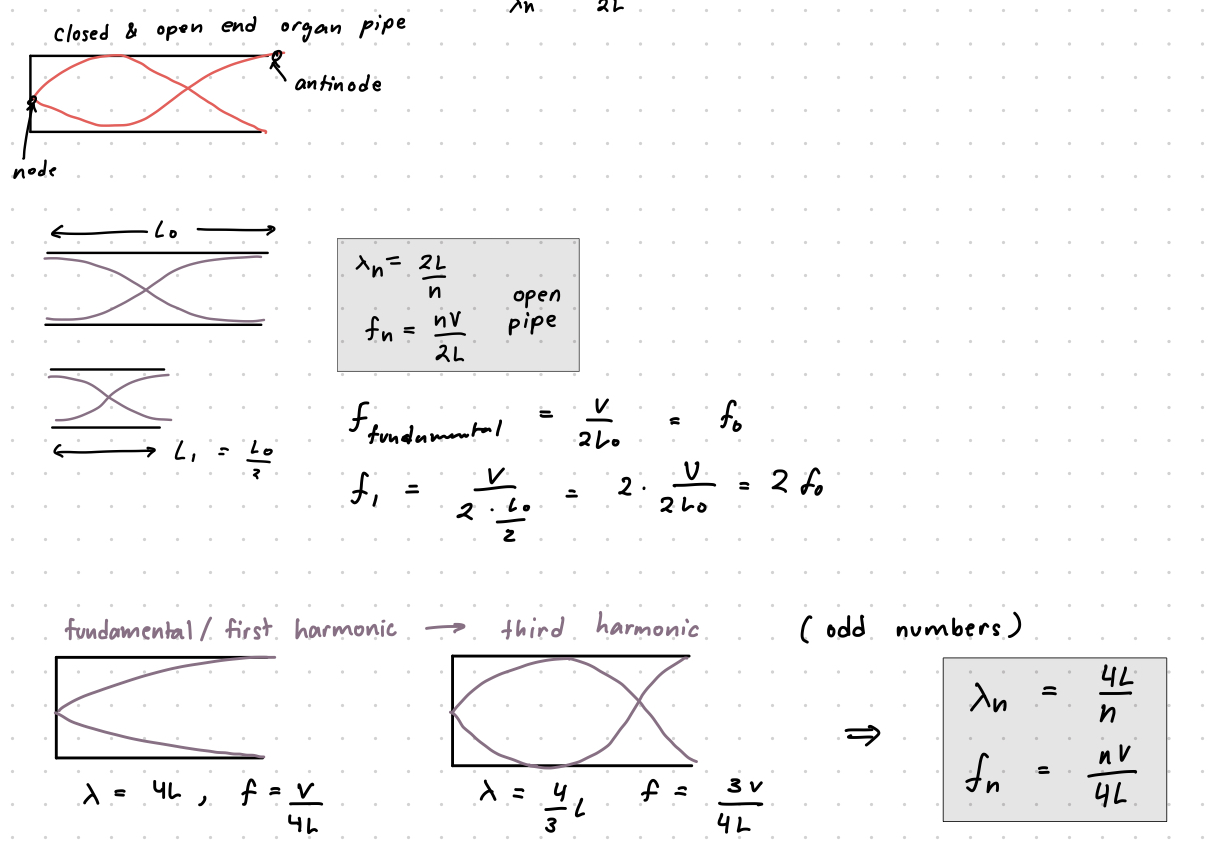 λn 2L
closed & open end organ pipe
antinode
node
L₀
λn = 2L/n
open pipe
fn = nV/2L
L₁ = L₀/2
f fundamental = V/2L₀ = f₀
f₁ = V/(2 · L₀/2) = 2 · V/2L₀ = 2 f₀
fundamental / first harmonic → third harmonic (odd numbers)
λ = 4L , f = V/4L
λ = 4/3 L f = 3V/4L
⇒
λn = 4L/n
fn = nV/4L